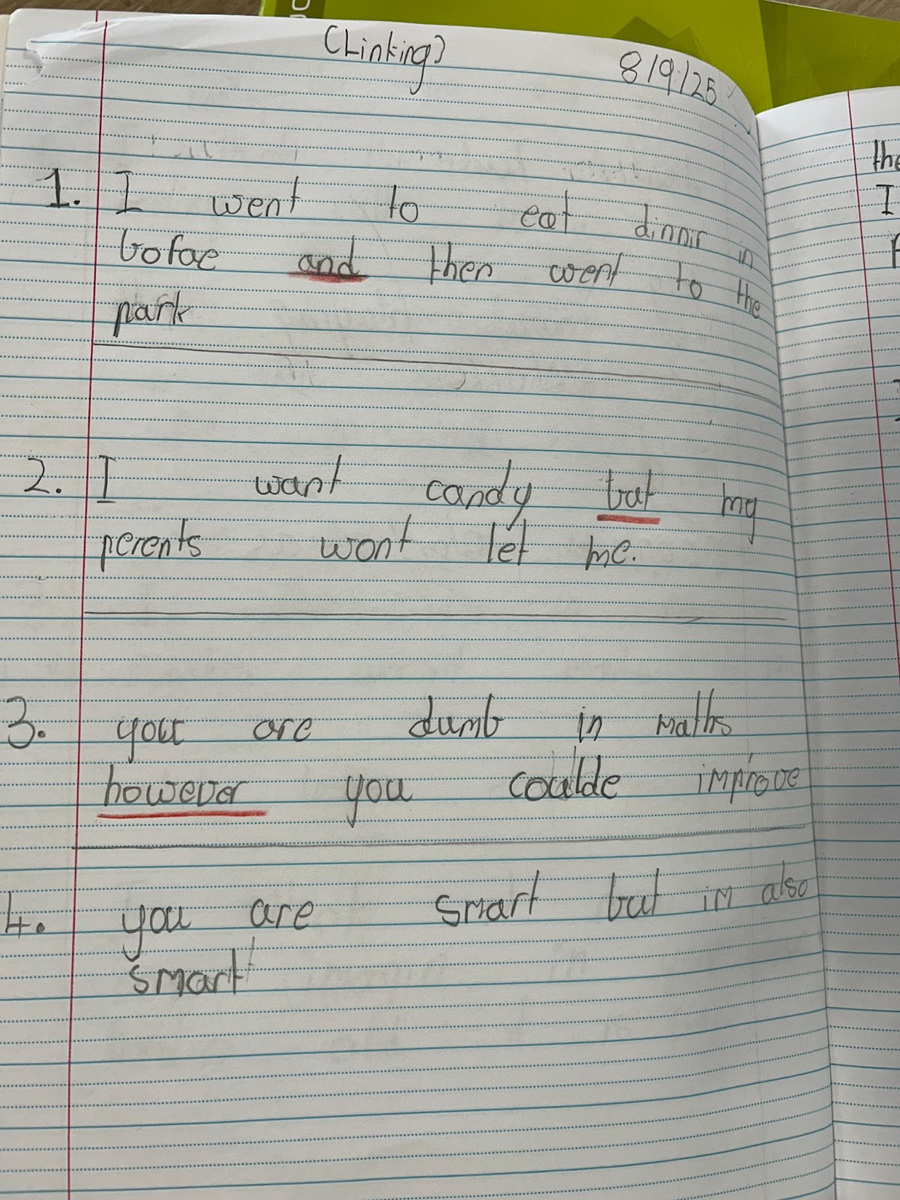 (Linking)
8/9/25
1. I went to eat dinnir in
bofae and then went to the
park
2. I want candy but my
perents wont let me.
3. you are dumb in maths
however you coulde improve
4. you are smart but im also
smart
the
I